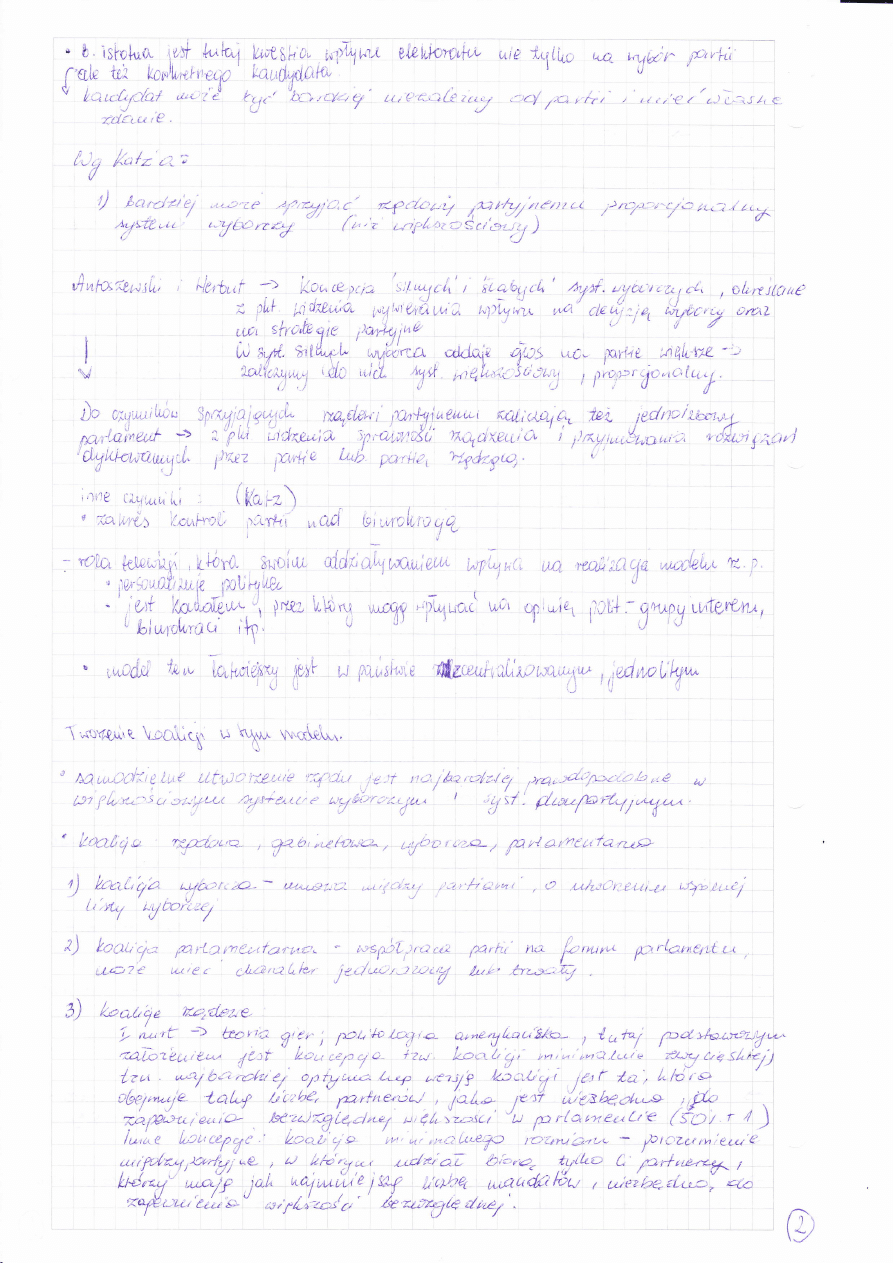 • b. istotna jest tutaj kwestia wpływu elektoratu nie tylko na wybór partii
ale też konkretnego kandydata.
kandydat może być bardziej niezależny od partii i mieć własne
zdanie.
Wg Katz'a:
1) bardziej może sprzyjać rządowi partyjnemu proporcjonalny
system wyborczy (niż większościowy)
Antoszewski i Herbut -> koncepcja 'silnych' i 'słabych' syst. wyborczych, określane
z pkt. widzenia wywierania wpływu na decyzją wyborcy oraz
na strategie partyjne
W syst. silnych wyborca oddaje głos na partie większe ->
zaliczymy do nich syst. większościowy, proporcjonalny.
Do czynników sprzyjających rządowi partyjnemu zaliczają też jednoizbowy
parlament -> z pkt widzenia sprawności rządzenia i przyjmowania rozwiązań
dyktowanych przez partie lub partię rządzącą.
inne czynniki: (Katz)
• zakres kontroli partii nad biurokracją
- rola telewizji, która swoim oddziaływaniem wpływa na realizację modelu rz. p.
• personalizuje politykę
• jest kanałem, przez który mogą wpływać na opinię polit. - grupy interesu,
biurokraci itp.
• model ten łatwiejszy jest w państwie zcentralizowanym, jednolitym
Tworzenie koalicji w tym modelu.
• samodzielne utworzenie rządu jest najbardziej prawdopodobne w
większościowym systemie wyborczym i syst. dwupartyjnym.
• koalicja rządowa, gabinetowa, wyborcza, parlamentarna
1) koalicja wyborcza - umowa między partiami, o utworzeniu wspólnej
listy wyborczej
2) koalicja parlamentarna - współpraca partii na forum parlamentu,
może mieć charakter jednorazowy lub trwały.
3) koalicje rządowe:
I nurt -> teoria gier; politologia amerykańska, tutaj podstawowym
założeniem jest koncepcja tzw. koalicji minimalnie zwycięskiej,
tzn. najbardziej optymalną wersją koalicji jest ta, która
obejmuje taką liczbę partnerów, jaka jest niezbędna do
zapewnienia bezwzględnej większości w parlamencie (50% + 1)
Inne koncepcje: koalicja minimalnego rozmiaru - porozumienie
międzypartyjne, w którym udział biorą tylko ci partnerzy,
którzy mają jak najmniejszą liczbę mandatów, niezbędną do
zapewnienia większości bezwzględnej.
2